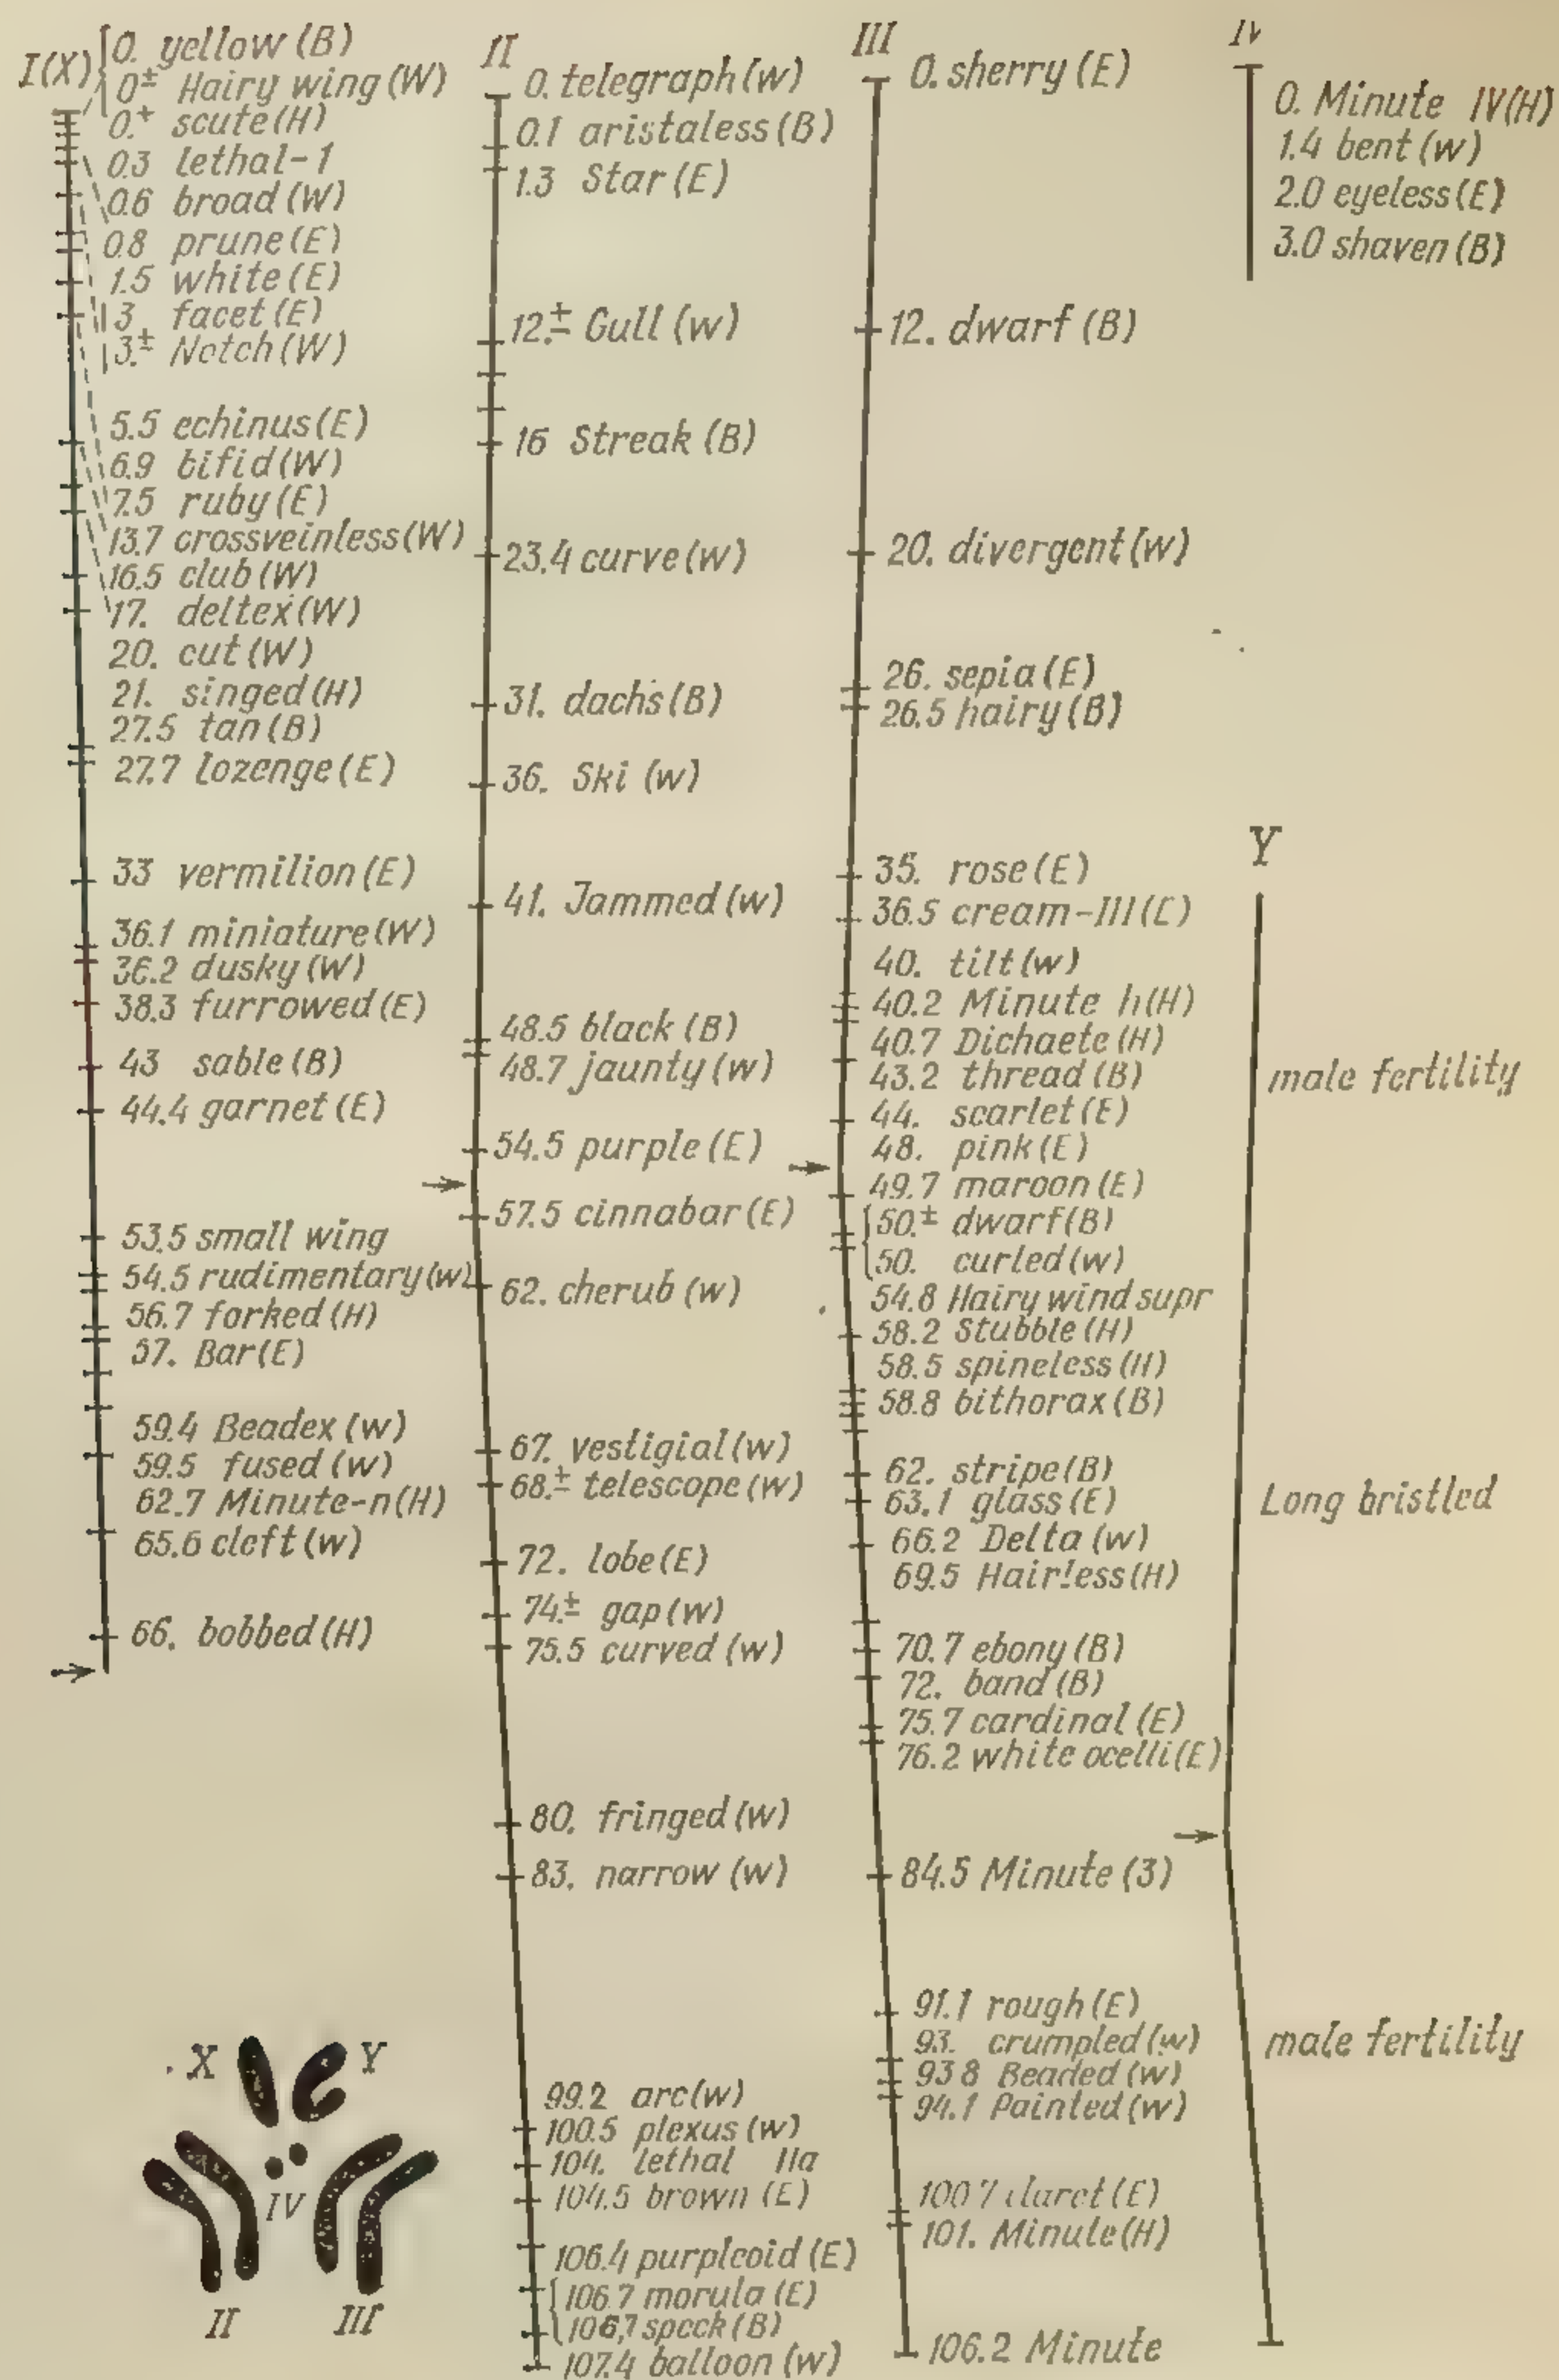 I(X)
0. yellow (B)
0± Hairy wing (W)
0.+ scute (H)
0.3 lethal-1
0.6 broad (W)
0.8 prune (E)
1.5 white (E)
3 facet (E)
3.± Notch (W)
5.5 echinus (E)
6.9 bifid (W)
7.5 ruby (E)
13.7 crossveinless (W)
16.5 club (W)
17. deltex (W)
20. cut (W)
21. singed (H)
27.5 tan (B)
27.7 lozenge (E)
33 vermilion (E)
36.1 miniature (W)
36.2 dusky (W)
38.3 furrowed (E)
43 sable (B)
44.4 garnet (E)
53.5 small wing
54.5 rudimentary (w)
56.7 forked (H)
57. Bar (E)
59.4 Beadex (w)
59.5 fused (w)
62.7 Minute-n (H)
65.6 cleft (w)
66. bobbed (H)
II
0. telegraph (w)
0.1 aristaless (B)
1.3 Star (E)
12.± Gull (w)
16 Streak (B)
23.4 curve (w)
31. dachs (B)
36. Ski (w)
41. Jammed (w)
48.5 black (B)
48.7 jaunty (w)
54.5 purple (E)
57.5 cinnabar (E)
62. cherub (w)
67. vestigial (w)
68.± telescope (w)
72. lobe (E)
74.± gap (w)
75.5 curved (w)
80. fringed (w)
83. narrow (w)
99.2 arc (w)
100.5 plexus (w)
104. lethal IIa
104.5 brown (E)
106.4 purpleoid (E)
106.7 morula (E)
106,7 speck (B)
107.4 balloon (w)
III
0. sherry (E)
12. dwarf (B)
20. divergent (w)
26. sepia (E)
26.5 hairy (B)
35. rose (E)
36.5 cream-III (E)
40. tilt (w)
40.2 Minute h (H)
40.7 Dichaete (H)
43.2 thread (B)
44. scarlet (E)
48. pink (E)
49.7 maroon (E)
50.± dwarf (B)
50. curled (w)
54.8 Hairy wind supr
58.2 Stubble (H)
58.5 spineless (H)
58.8 bithorax (B)
62. stripe (B)
63.1 glass (E)
66.2 Delta (w)
69.5 Hairless (H)
70.7 ebony (B)
72. band (B)
75.7 cardinal (E)
76.2 white ocelli (E)
84.5 Minute (3)
91.1 rough (E)
93. crumpled (w)
93.8 Beaded (w)
94.1 Painted (w)
100.7 claret (E)
101. Minute (H)
106.2 Minute
IV
0. Minute IV (H)
1.4 bent (w)
2.0 eyeless (E)
3.0 shaven (B)
Y
male fertility
Long bristled
male fertility
X Y
IV
II III